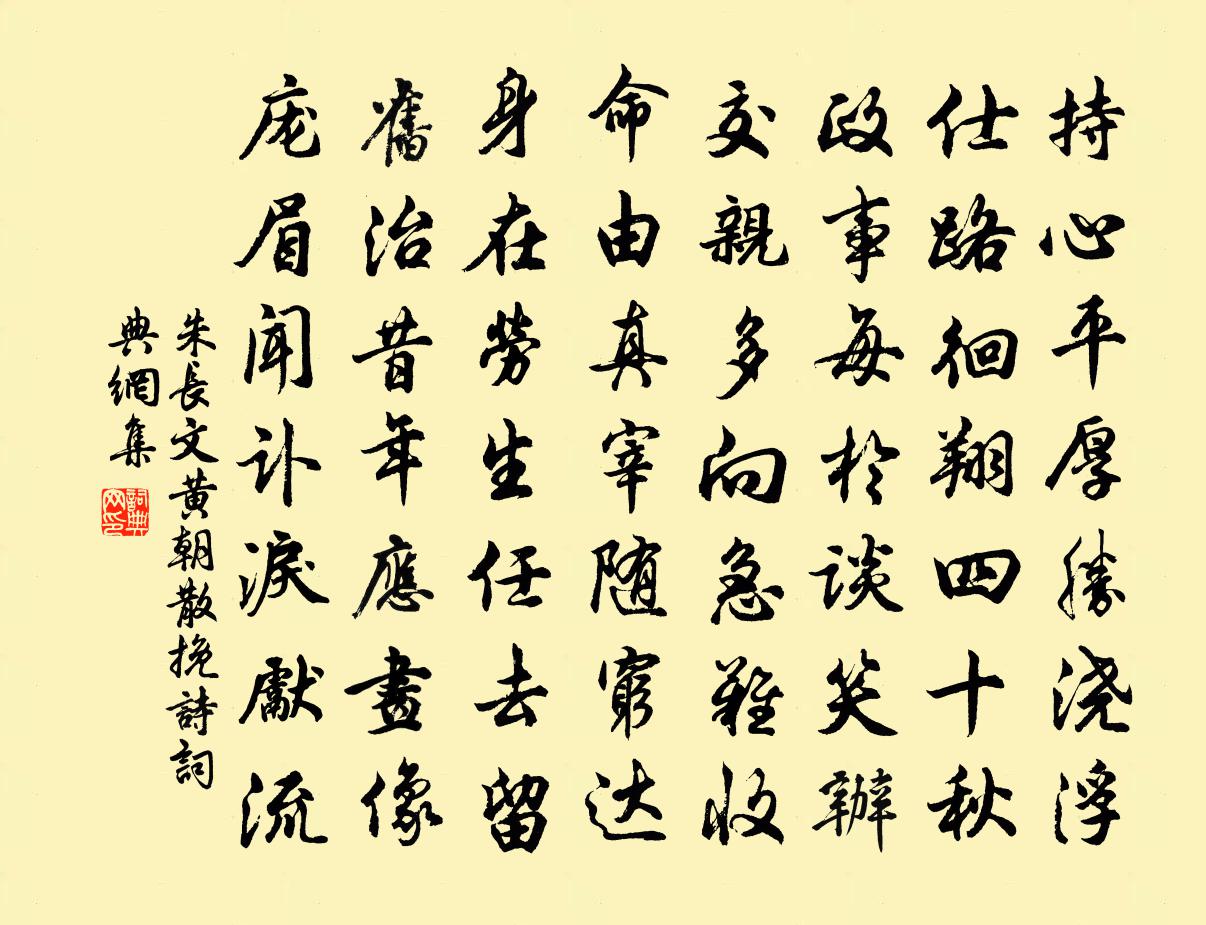 持心平厚勝浇浮
仕路徊翔四十秋
政事每於谈笑辦
交親多向急難收
命由真宰随窮达
身在勞生任去留
舊治昔年應畫像
庞眉闻讣淚獻流
朱長文黄朝散挽詩詞
典網集
詞典网印